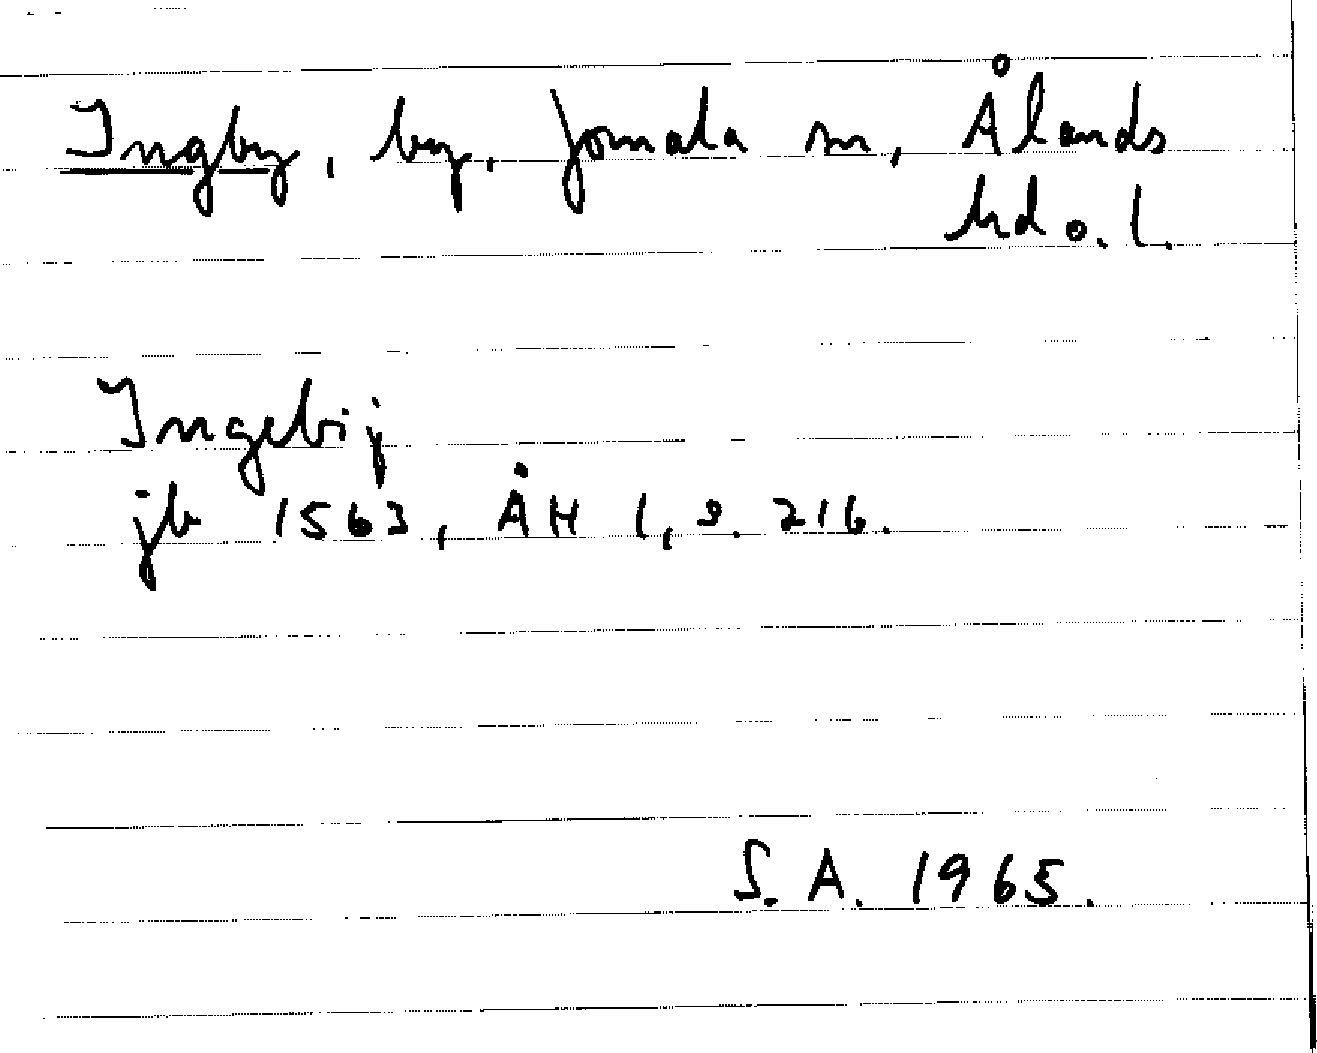 Ingby, by, Jomala sn, Ålands
hd o. l.
Ingebij
jb 1563, ÅH 1, s. 216.
S. A. 1965.